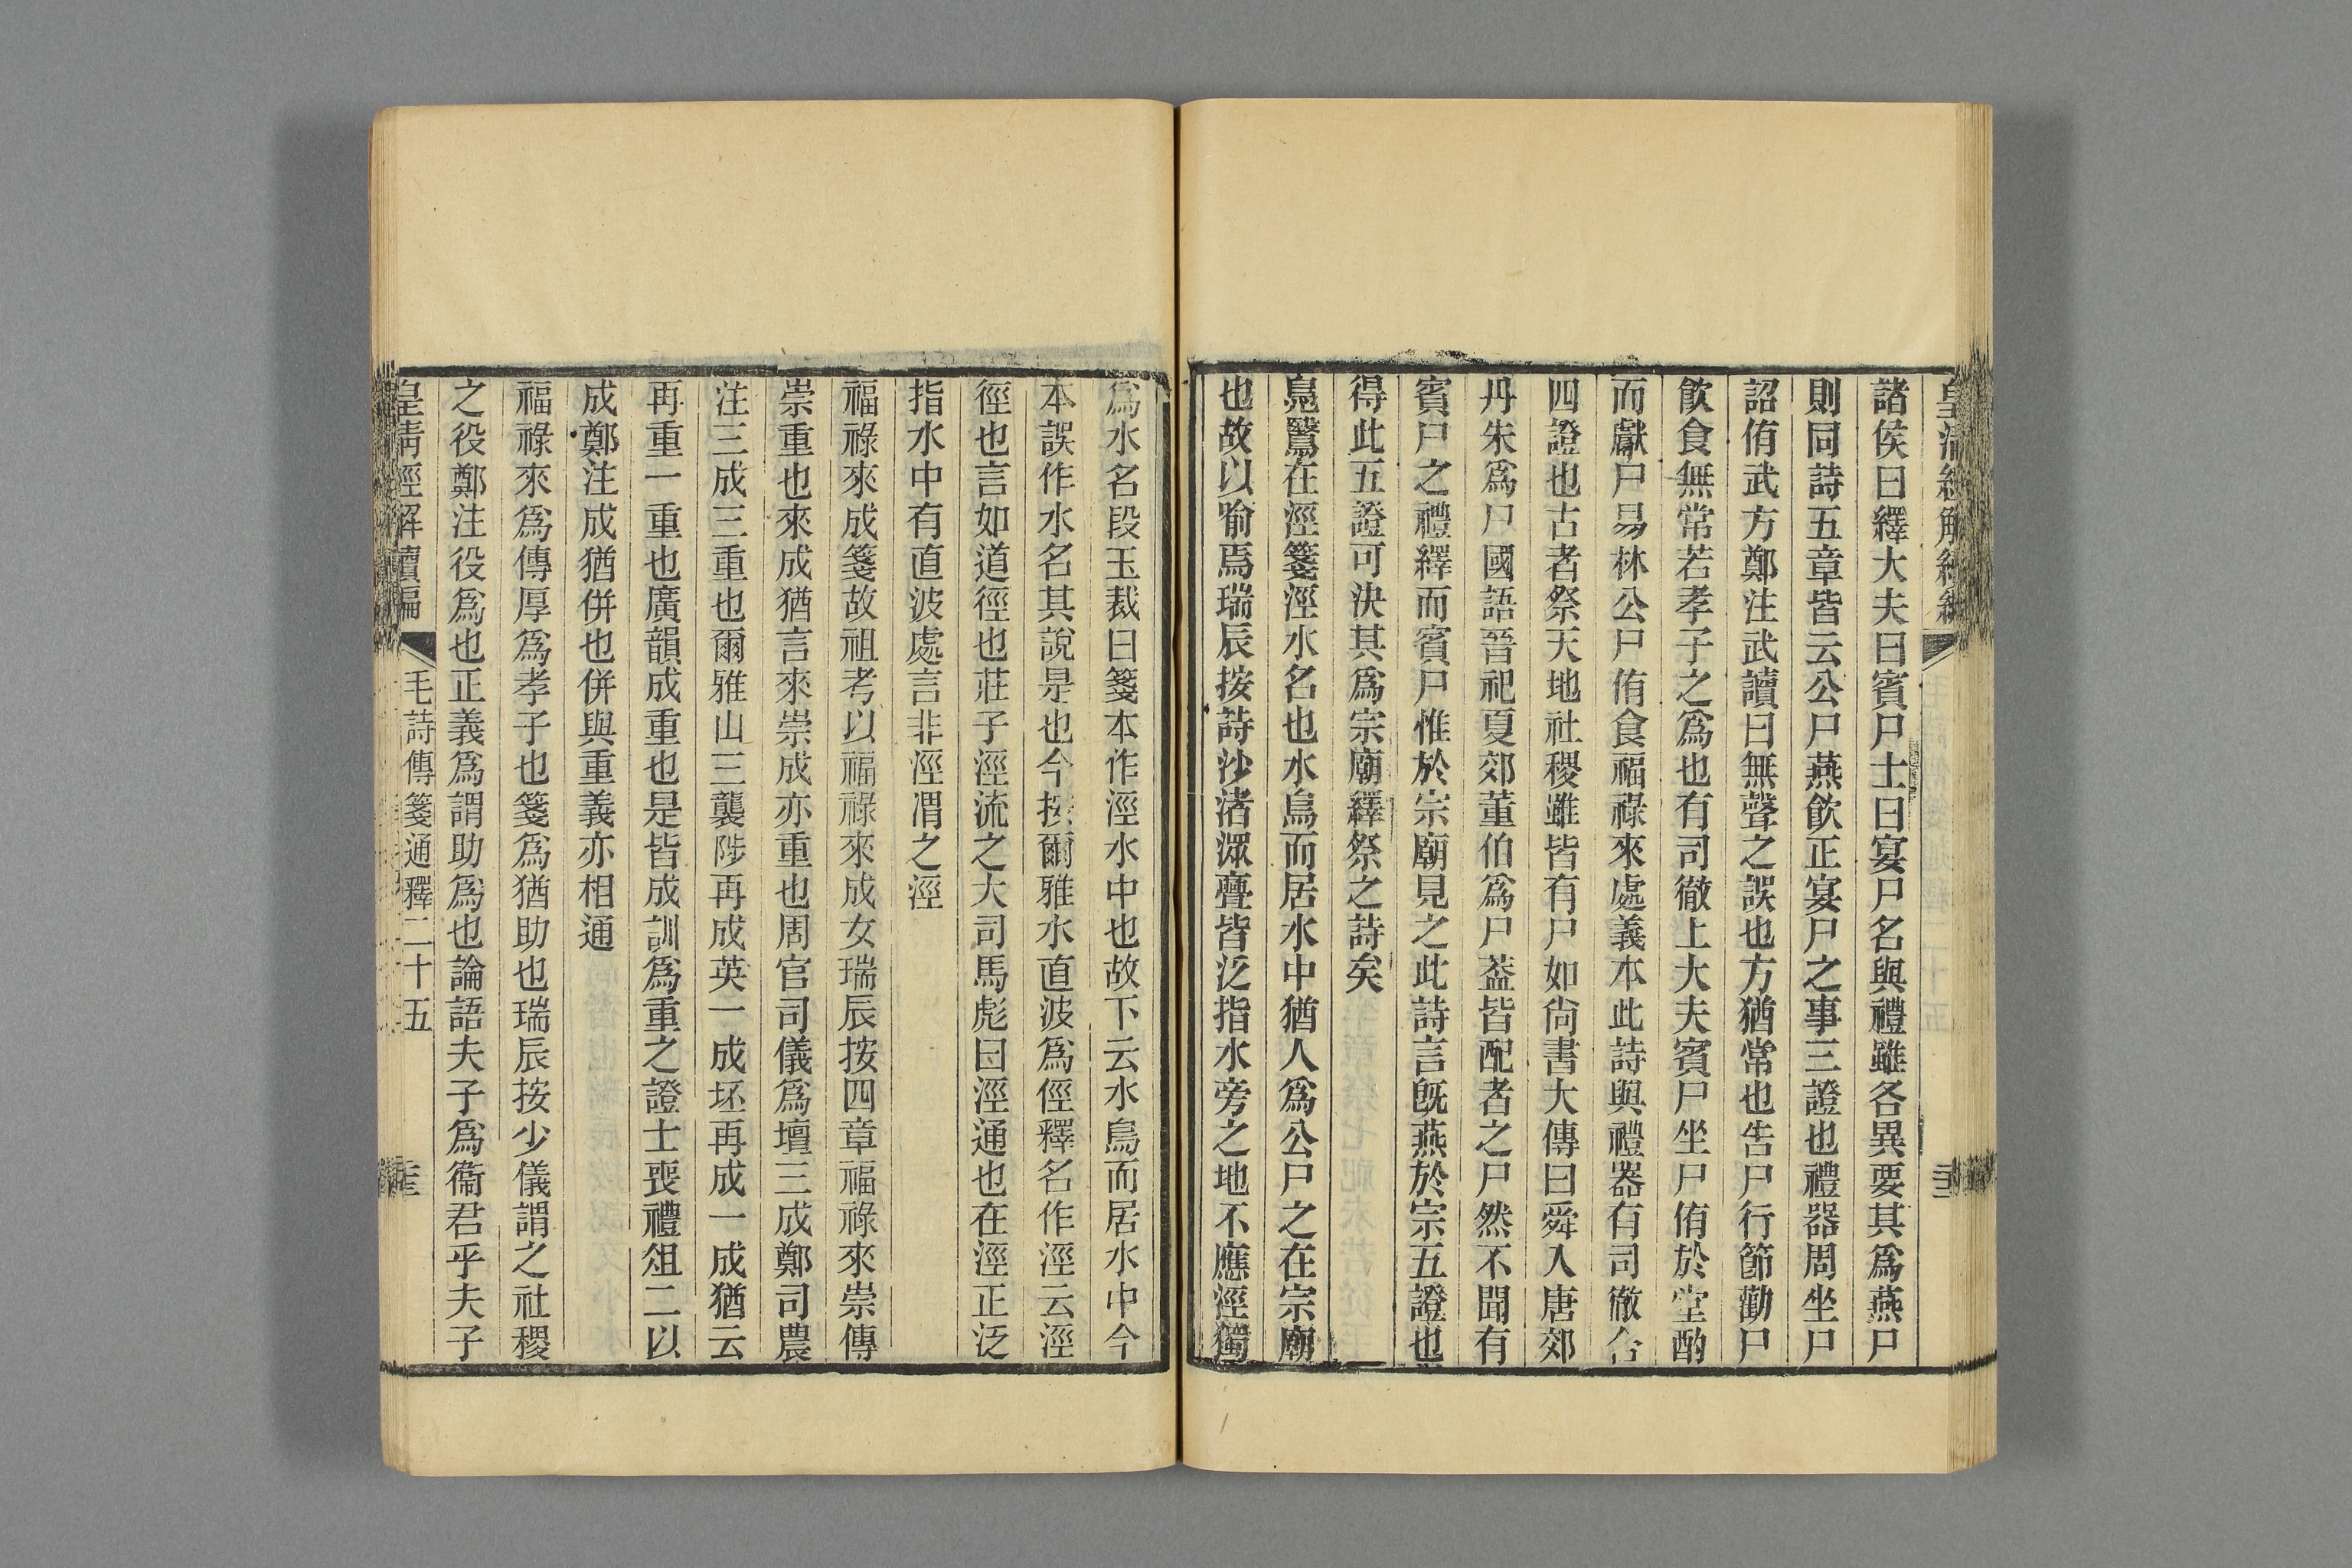 諸侯曰繹大夫曰賓尸士曰宴尸名與禮雖各異要其爲燕尸
則同詩五章皆云公尸燕飲正宴尸之事三證也禮器周坐尸
詔侑武方鄭注武讀曰無聲之誤也方猶常也告尸行節勸尸
飲食無常若孝子之爲也有司徹上大夫賓尸坐尸侑於堂酌
而獻尸易林公尸侑食福祿來處義本此詩與禮器有司徹合
四證也古者祭天地社稷雖皆有尸如尙書大傳曰舜入唐郊
丹朱爲尸國語晉祀夏郊董伯爲尸葢皆配者之尸然不聞有
賓尸之禮繹而賓尸惟於宗廟見之此詩言旣燕於宗五證也
得此五證可決其爲宗廟繹祭之詩矣
鳧鷖在涇箋涇水名也水鳥而居水中猶人爲公尸之在宗廟
也故以喻焉瑞辰按詩沙渚潀亹皆泛指水旁之地不應涇獨
爲水名段玉裁曰箋本作涇水中也故下云水鳥而居水中今
本誤作水名其說是也今按爾雅水直波爲徑釋名作涇云涇
徑也言如道徑也莊子涇流之大司馬彪曰涇通也在涇正泛
指水中有直波處言非涇渭之涇
福祿來成箋故祖考以福祿來成女瑞辰按四章福祿來崇傳
崇重也來成猶言來崇成亦重也周官司儀爲壇三成鄭司農
注三成三重也爾雅山三襲陟再成英一成坯再成一成猶云
再重一重也廣韻成重也是皆成訓爲重之證士喪禮俎二以
成鄭注成猶併也併與重義亦相通
福祿來爲傳厚爲孝子也箋爲猶助也瑞辰按少儀謂之社稷
之役鄭注役爲也正義爲謂助爲也論語夫子爲衞君乎夫子
皇淸經解續編
毛詩傳箋通釋二十五